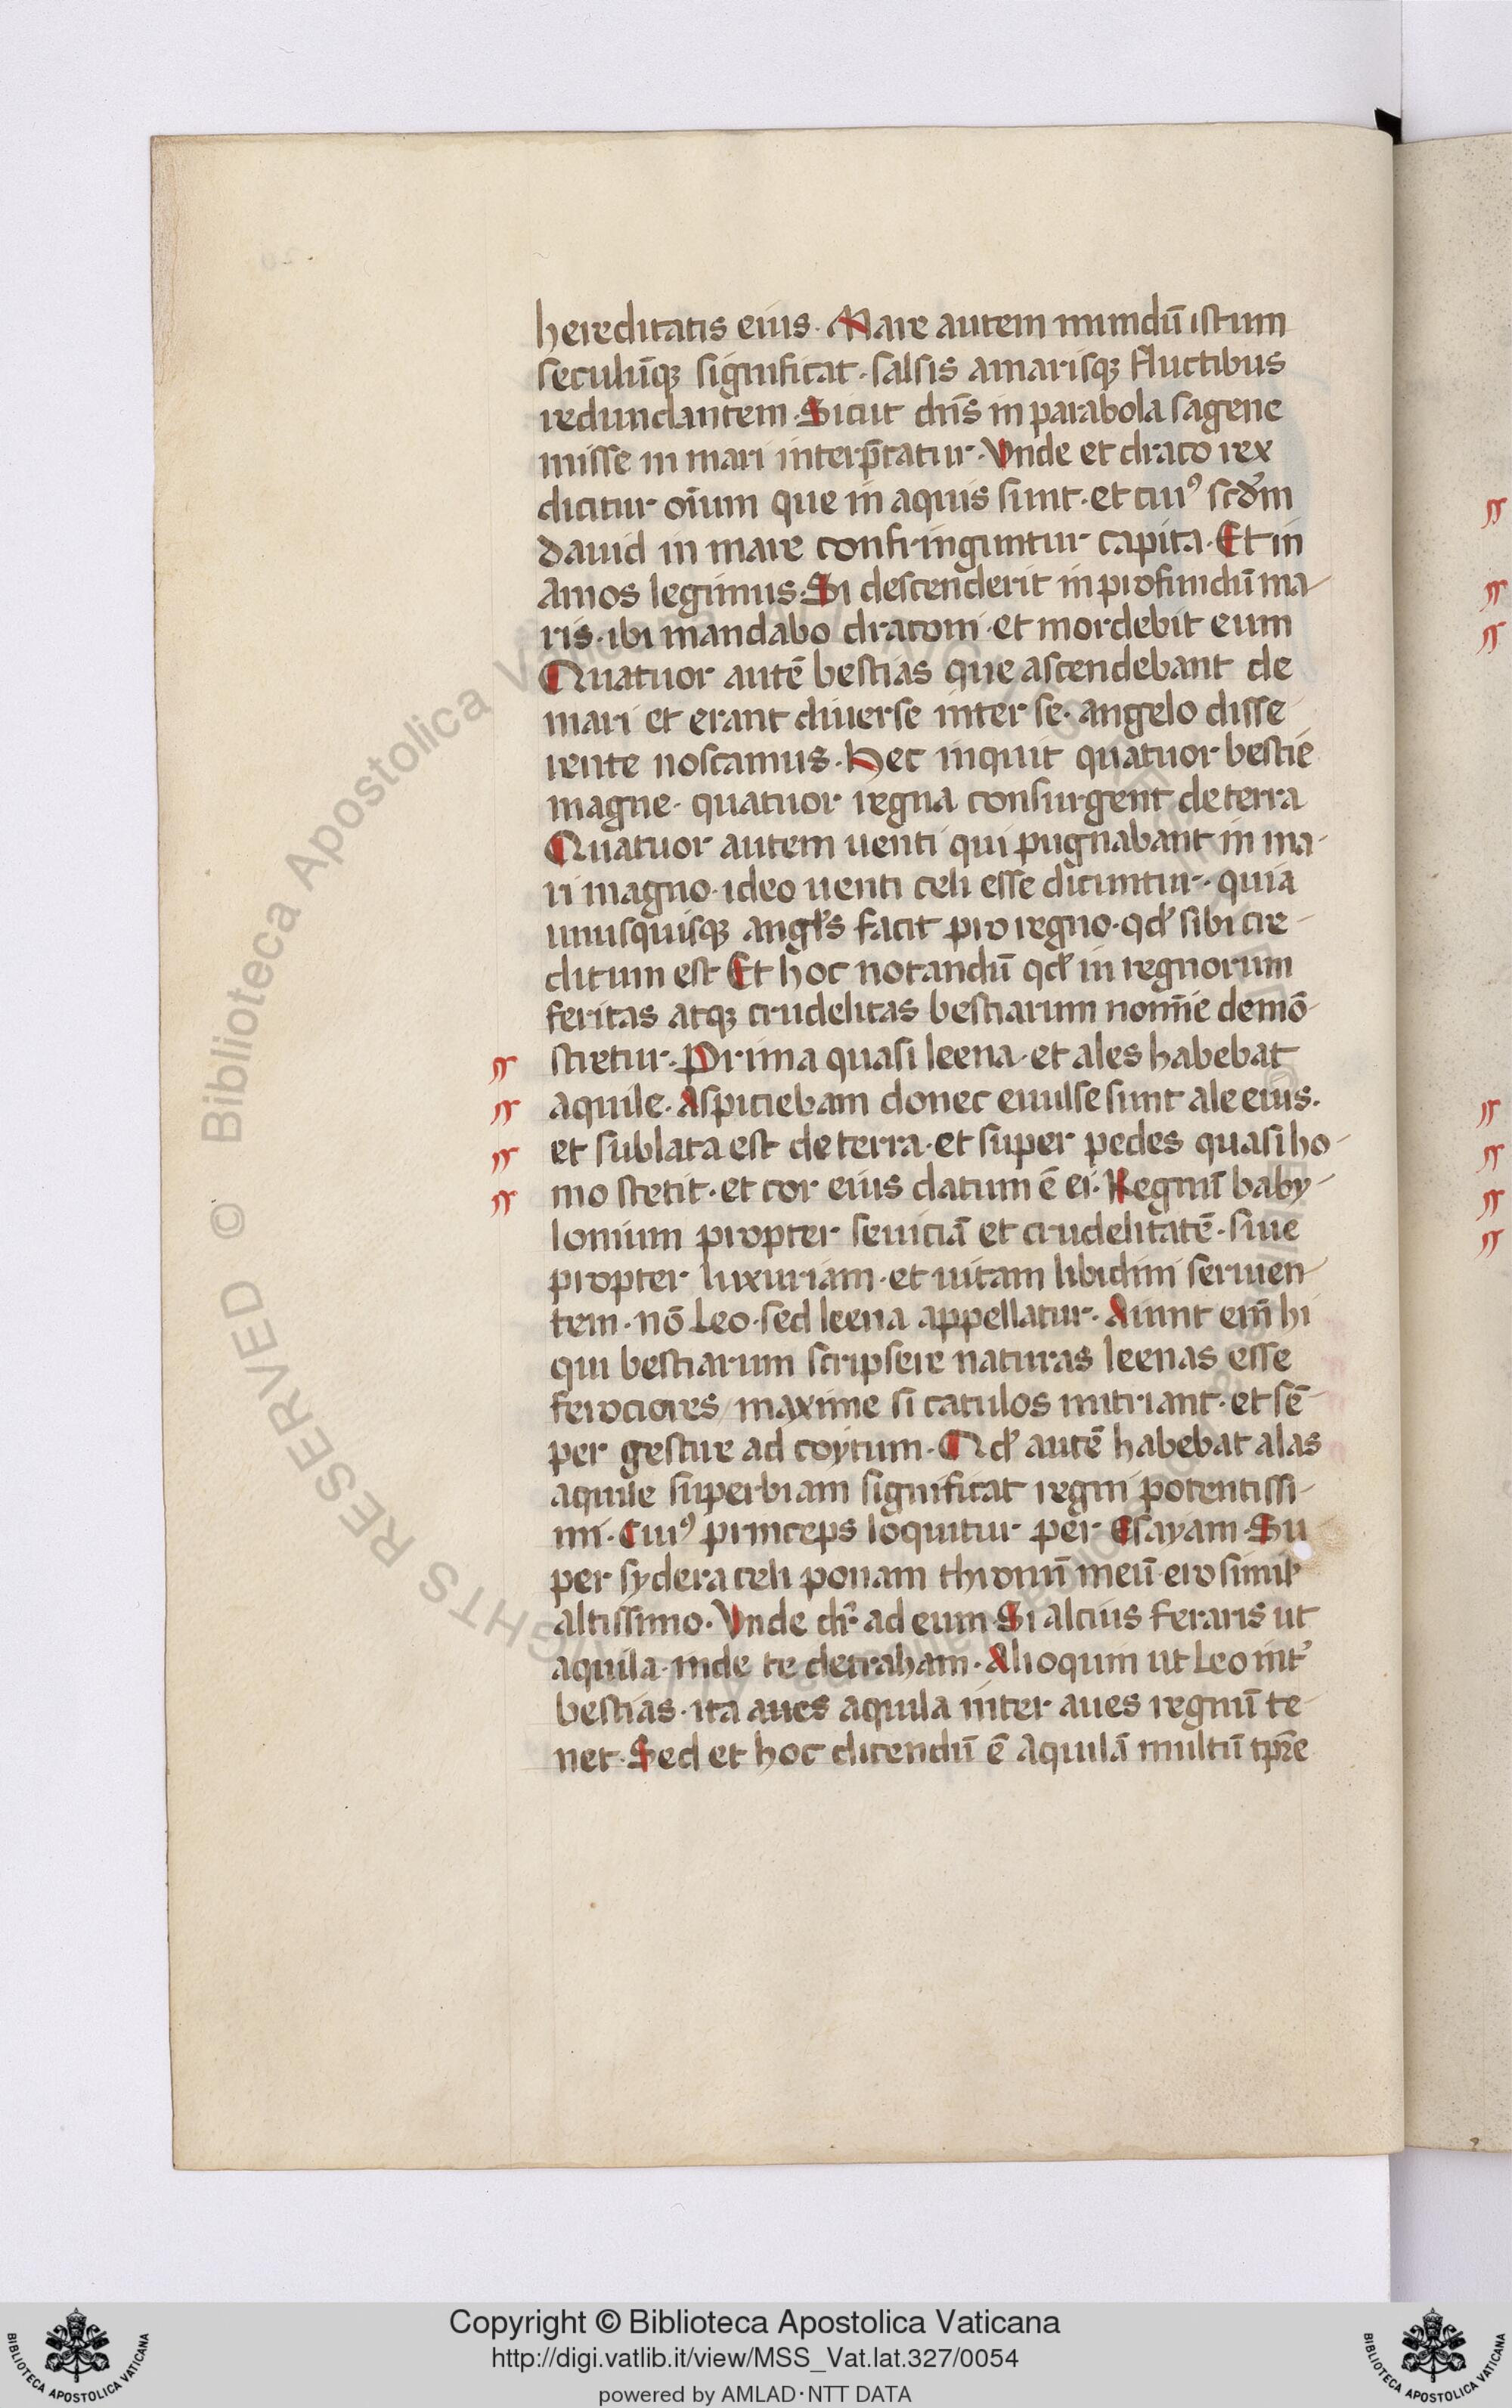 hereditatis eius. Mare autem mundū istum
seculūq; significat. salsis amarisq; fluctibus
redundantem. Sicut dn̄s in parabola sagene
misse in mari interp̄tatur. Vnde et draco rex
dicitur oīum que in aquis sunt. et cuiꝰ scd̄m
dauid in mare confringuntur capita. Et in
amos legimus. Si descenderit in profundū ma-
ris. ibi mandabo draconi. et mordebit eum
Quatuor autē bestias que ascendebant de
mari et erant diuerse inter se. angelo disse
rente noscamus. Hec inquit quatuor bestie
magne. quatuor regna consurgent de terra
Quatuor autem uenti qui pugnabant in ma-
ri magno. ideo uenti celi esse dicuntur. quia
unusquisq; angl̄s facit pro regno. qd̄ sibi cre-
ditum est Et hoc notandū qd̄ in regnorum
feritas atq; crudelitas bestiarum nom̄ie demō-
stretur. Prima quasi leena. et ales habebat
aquile. Aspiciebam donec euulse sunt ale eius.
et sublata est de terra. et super pedes quasi ho-
mo stetit. et cor eius datum ē ei. Regnū baby-
lonium propter seuiciā et crudelitatē. siue
propter luxuriam. et uitam libidini seruien-
tem. nō Leo. sed leena appellatur. Aiunt em̄ hi
qui bestiarum scripsere naturas leenas esse
ferociores/maxime si catulos nutriant. et sē-
per gestire ad coytum. Qd̄ autē habebat alas
aquile superbiam significat regni potentissi-
mi. Cuiꝰ princeps loquitur per Esayam. Su
per sydera celi ponam thronū meū. ero simil̄
altissimo. Vnde dr̄ ad eum. Si alcius feraris ut
aquila. inde te detraham. Alioquin ut Leo int̄
bestias. ita aues aquila inter aues regnū te-
net. Sed et hoc dicendū ē Aquilā multū tp̄re
Copyright © Biblioteca Apostolica Vaticana
http://digi.vatlib.it/view/MSS_Vat.lat.327/0054
powered by AMLAD·NTT DATA
BIBLIOTECA APOSTOLICA VATICANA
BIBLIOTECA APOSTOLICA VATICANA